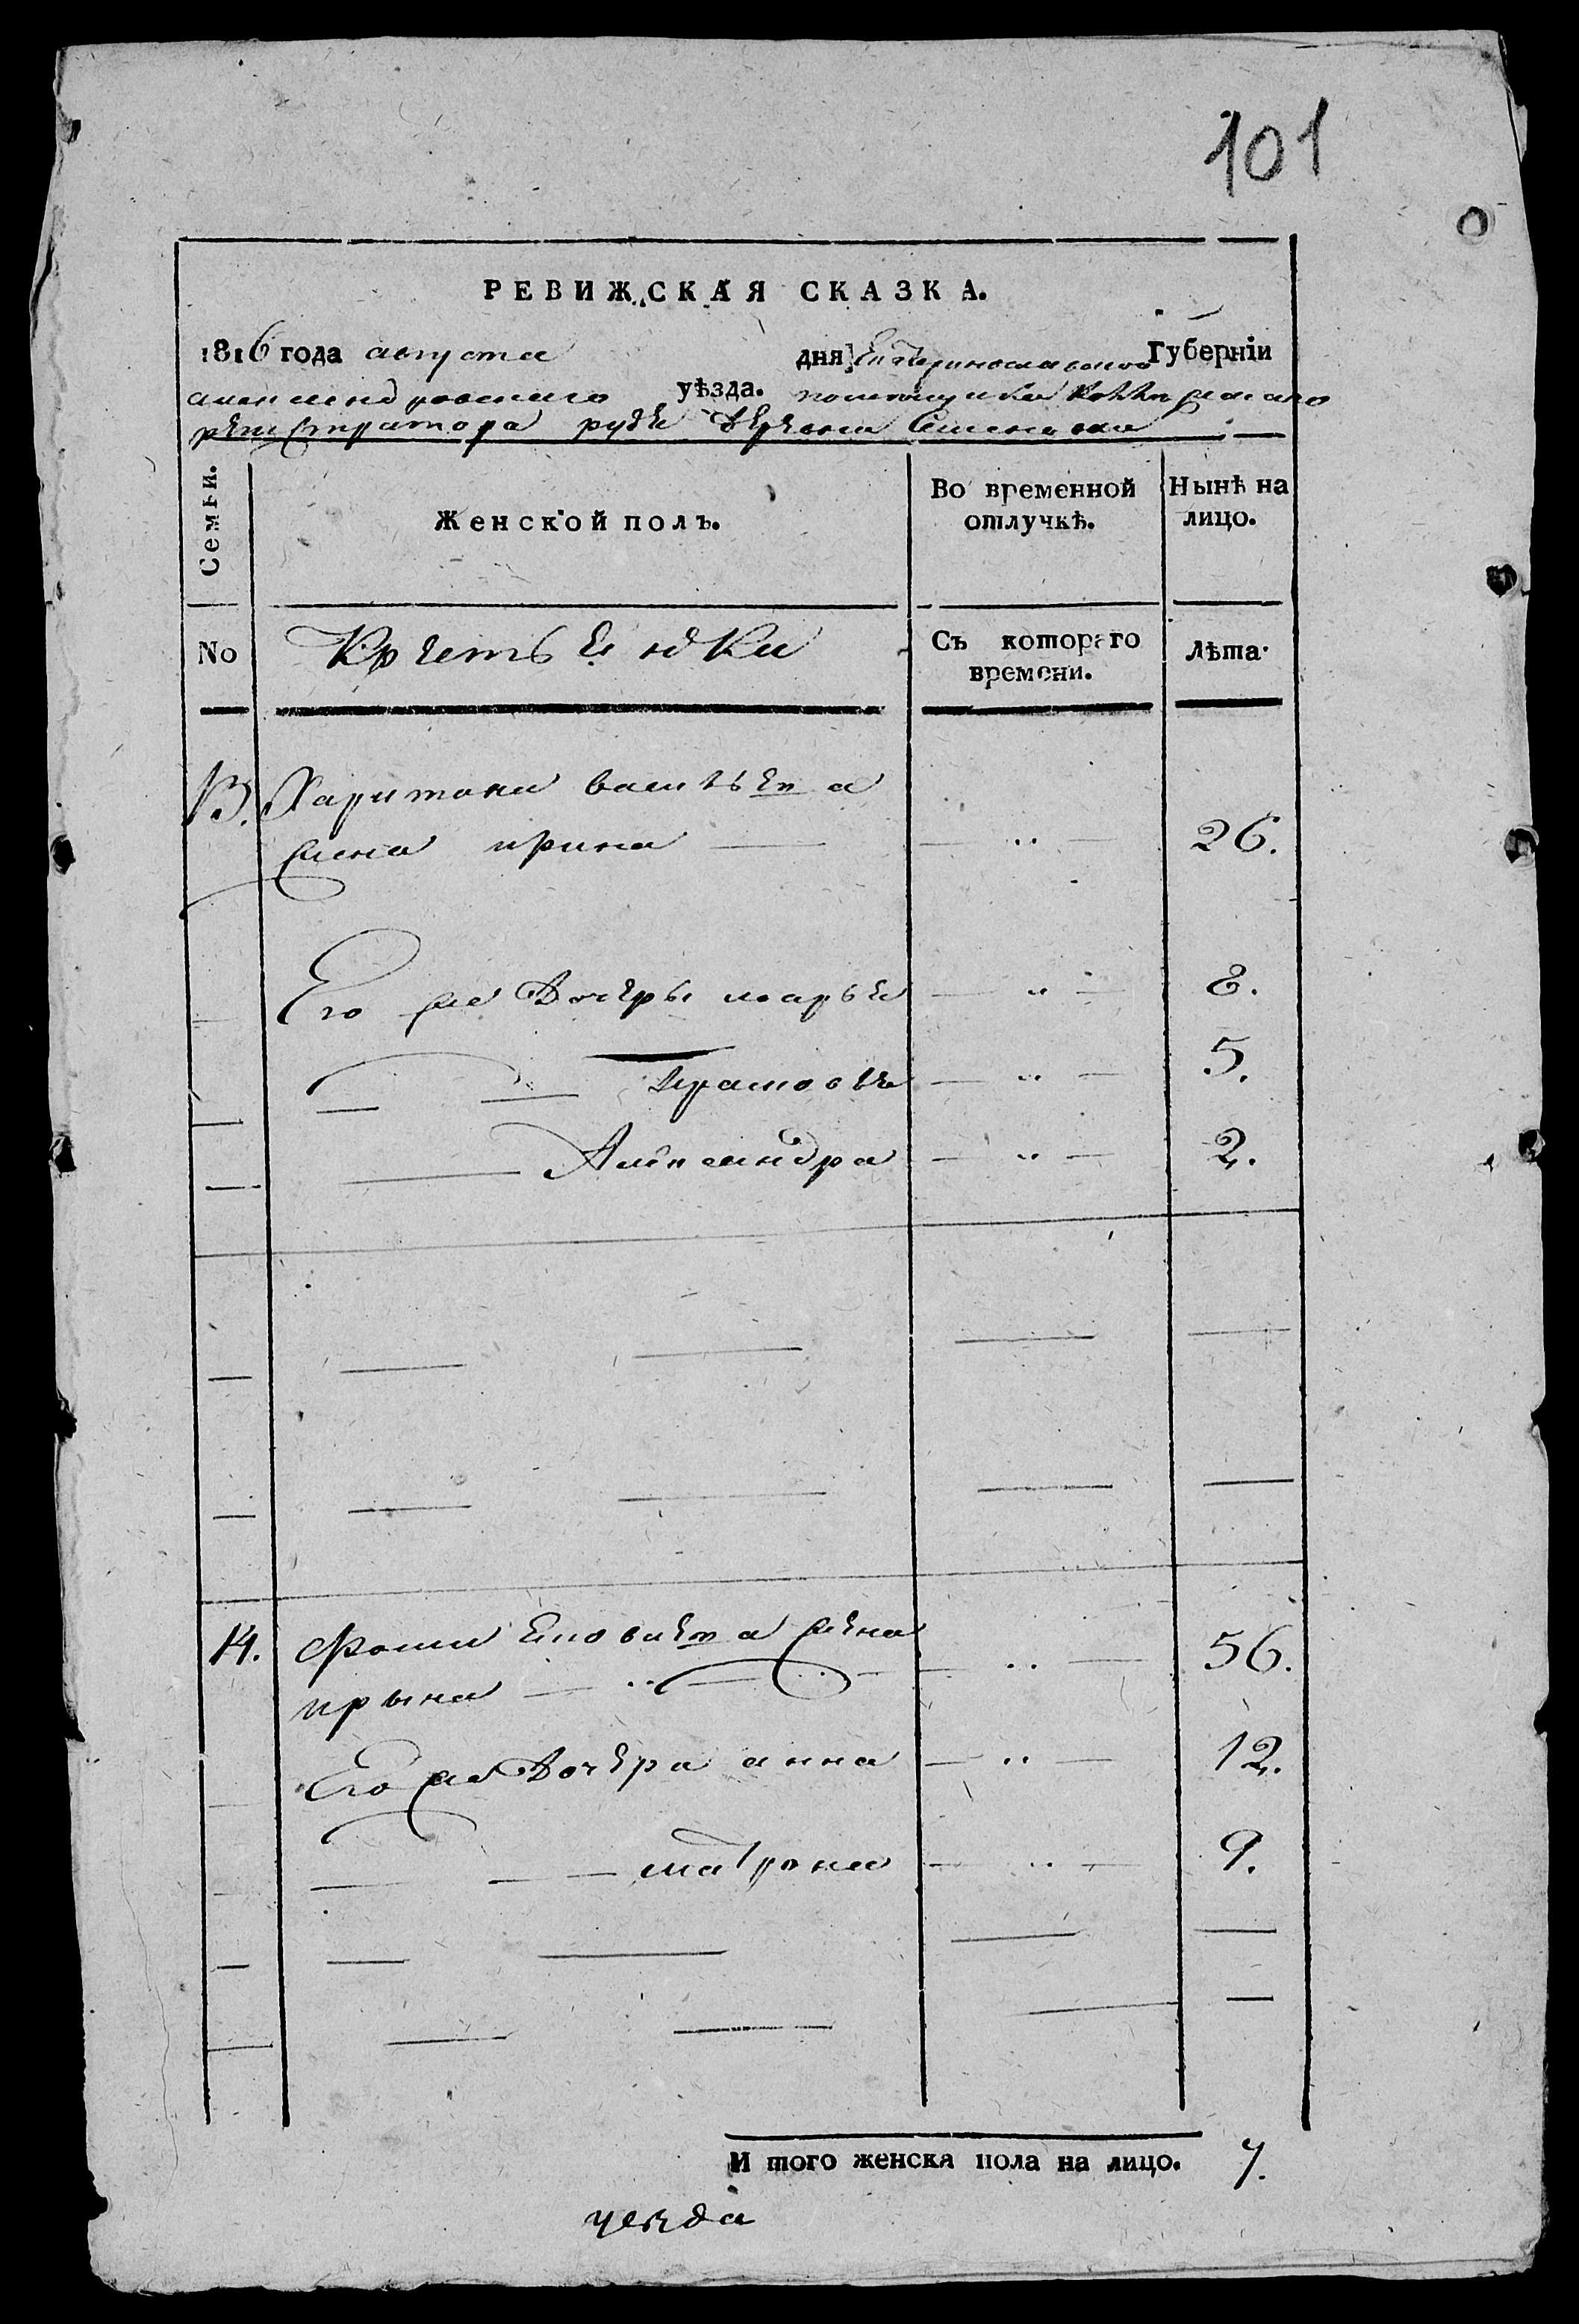 101
РЕВИЖСКАЯ СКАЗКА.
1816 года августа дня Екатеринославской Губерніи
александровскаго уѣзда. помещика коллежскаго
регистратора рудѣ деревни Семеновки
Семьи. Женской полъ. Во временной отлучкѣ. Нынѣ на лицо.
No Крестьенки Съ котораго времени. Лѣта.
13. Харитона василь
жена ирина — „ — 26.
Его же дочеры марья — „ — 8.
— — — „ — 5.
— Александра — „ — 2.
14. Фомы жена — „ — 56.
ирына
Его же дочера анна — „ — 12.
— — матрона — „ — 9.
И того женска пола на лицо. 7.